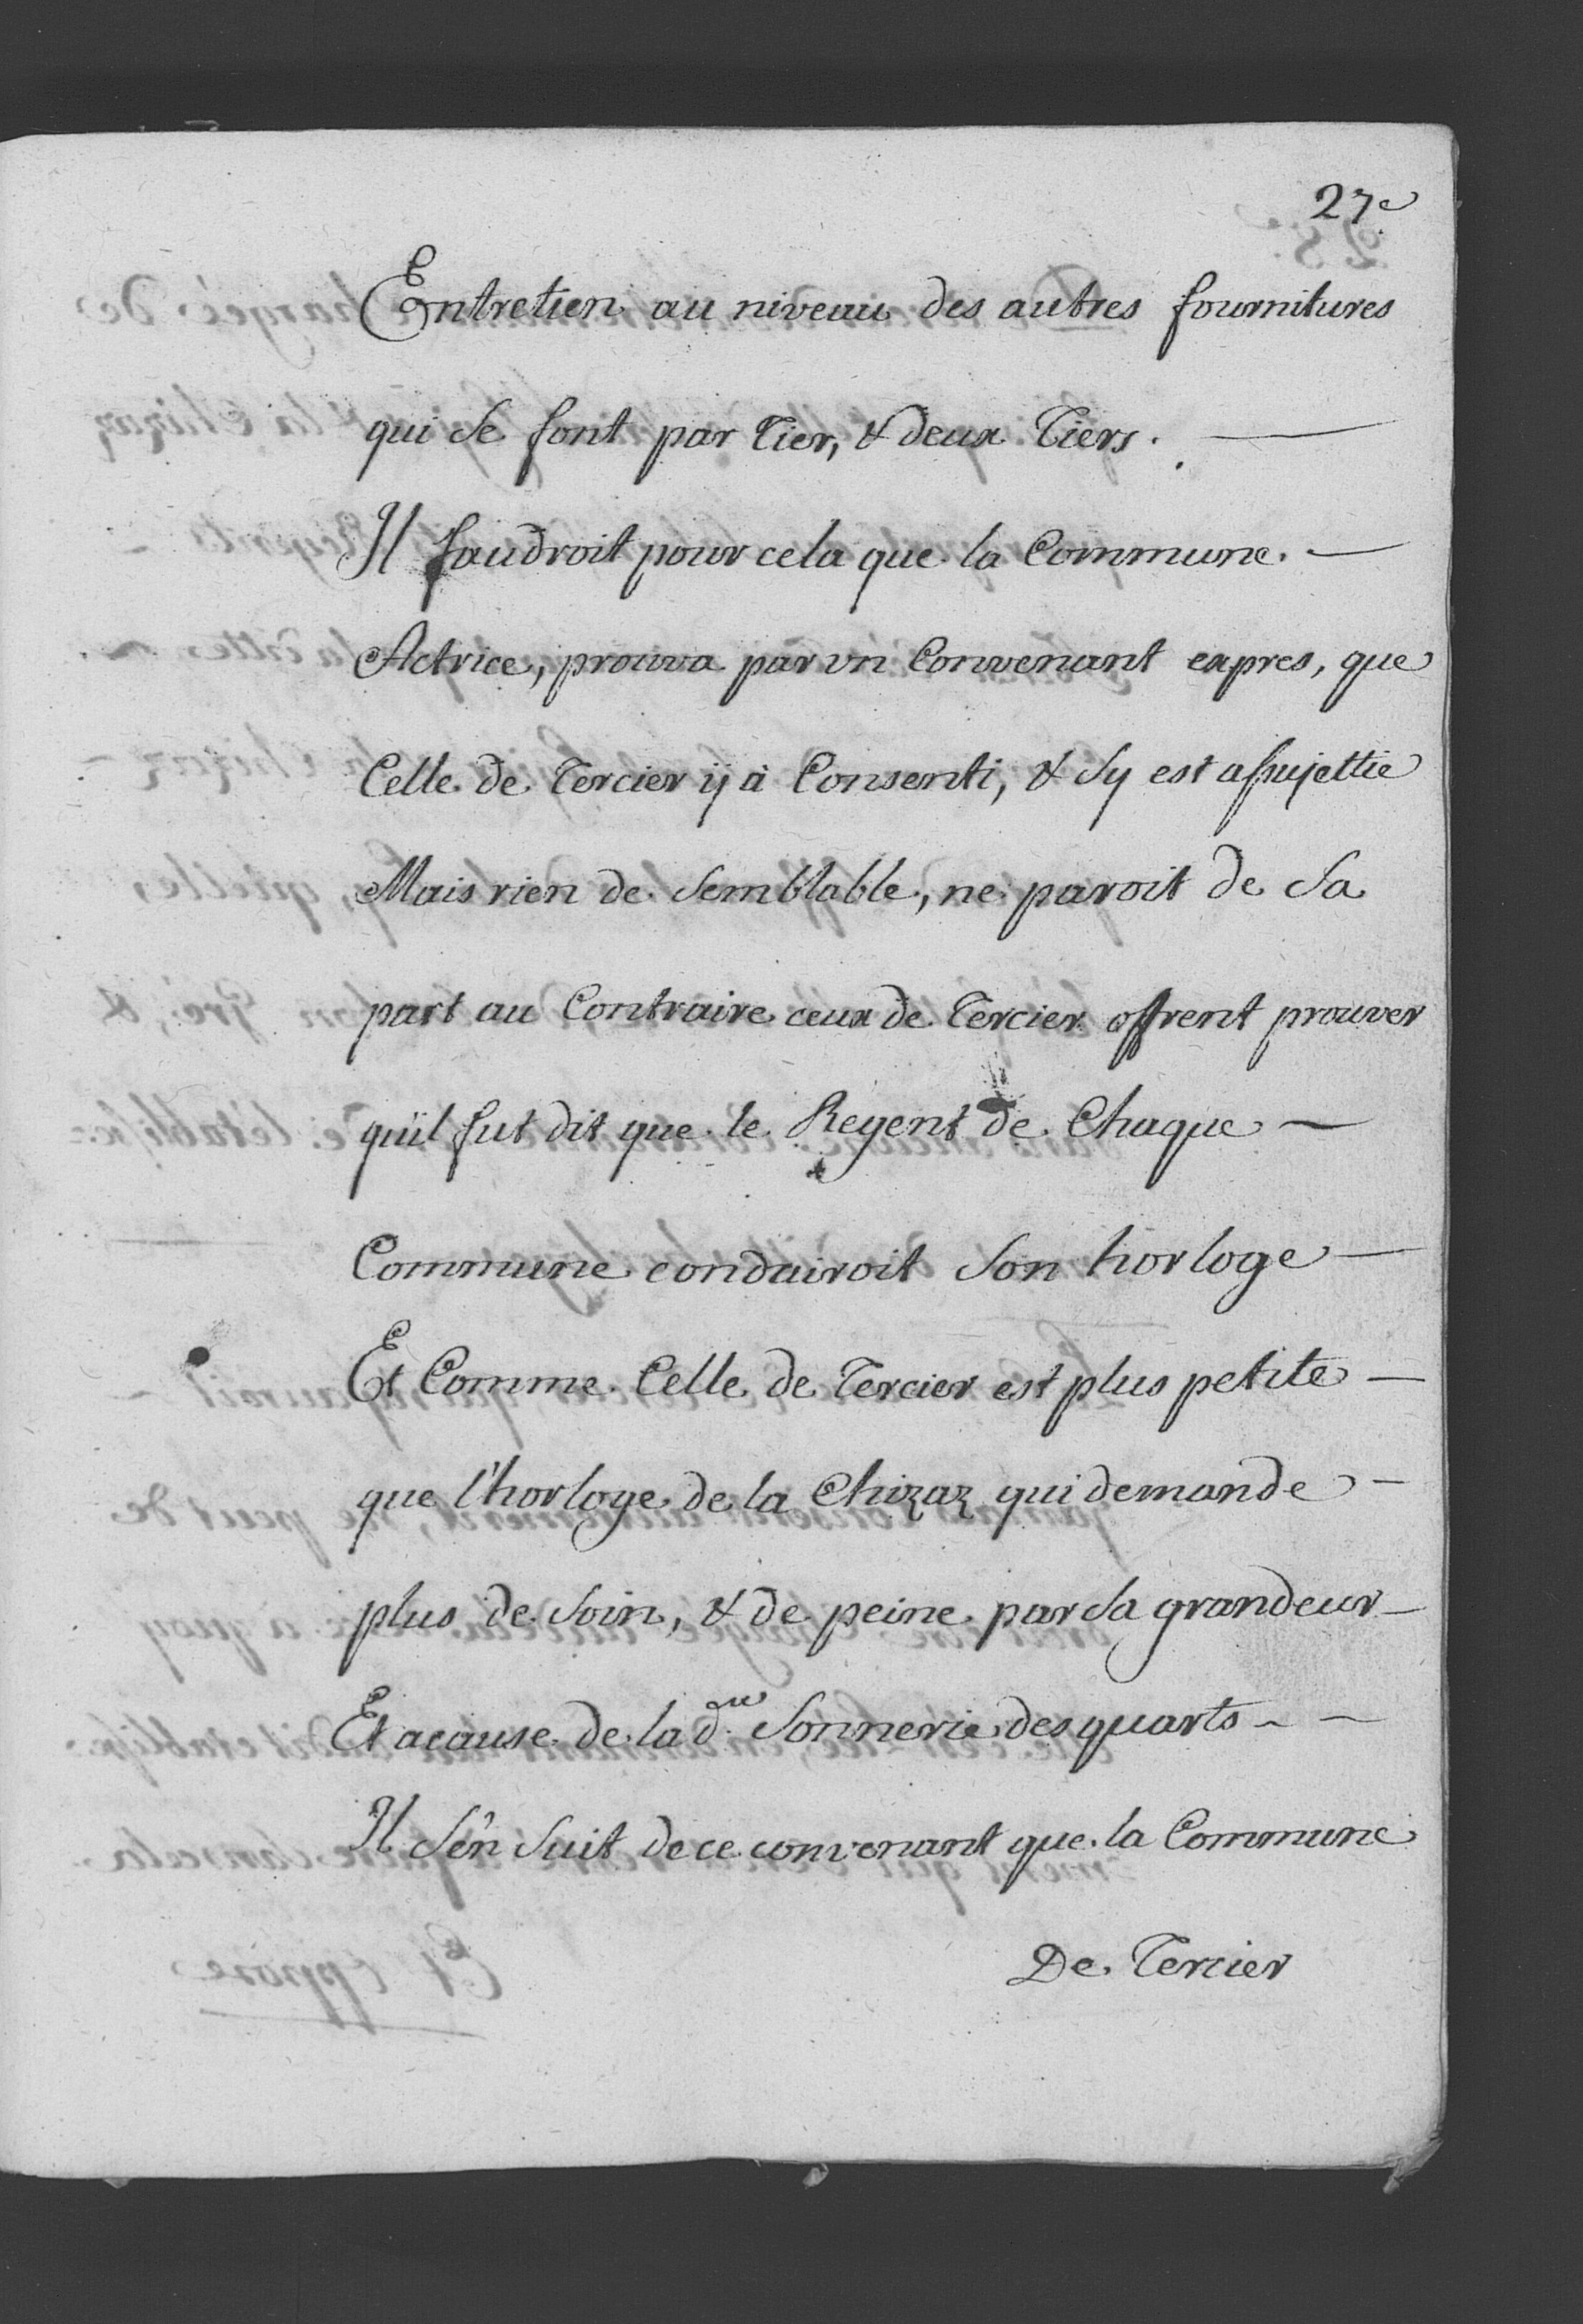 27e
Entretien au niveau des autres fournitures
qui se font par Tier, & deux Tiers. —
Il faudroit pour cela que la Commune. —
Actrice, prouva par vn Convenant expres, que
Celle de Tercier ÿ à Consenti, & sy est assujettie
Mais rien de semblable, ne paroit de sa
part au Contraire ceux de Tercier offrent prouver
quïl fut dit que le Regent de Chaque —
Commune conduiroit son horloge —
Et Comme Celle de Tercier est plus petite —
que l'horloge de la Chizaz qui demande —
plus de soin, & de peine par sa grandeur —
Et acause de la d.te Sonnerie des quarts - —
Il s'en suit de ce convenant que la Commune
De Tercier